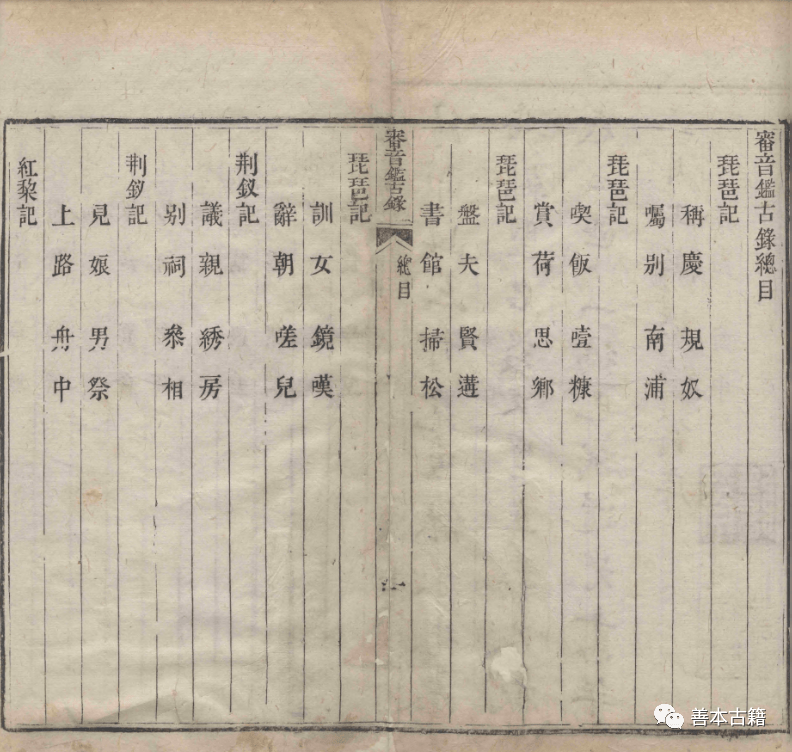 審音鑑古錄總目
琵琶記
稱慶 規奴
囑别 南浦
琵琶記
喫飯 噎糠
賞荷 思鄉
琵琶記
盤夫 賢遘
書館 掃松
審音鑑古錄 總目 一
琵琶記
訓女 鏡嘆
辭朝 嗟兒
荆釵記
議親 綉房
别祠 叅相
荆釵記
見娘 男祭
上路 舟中
紅棃記
善本古籍